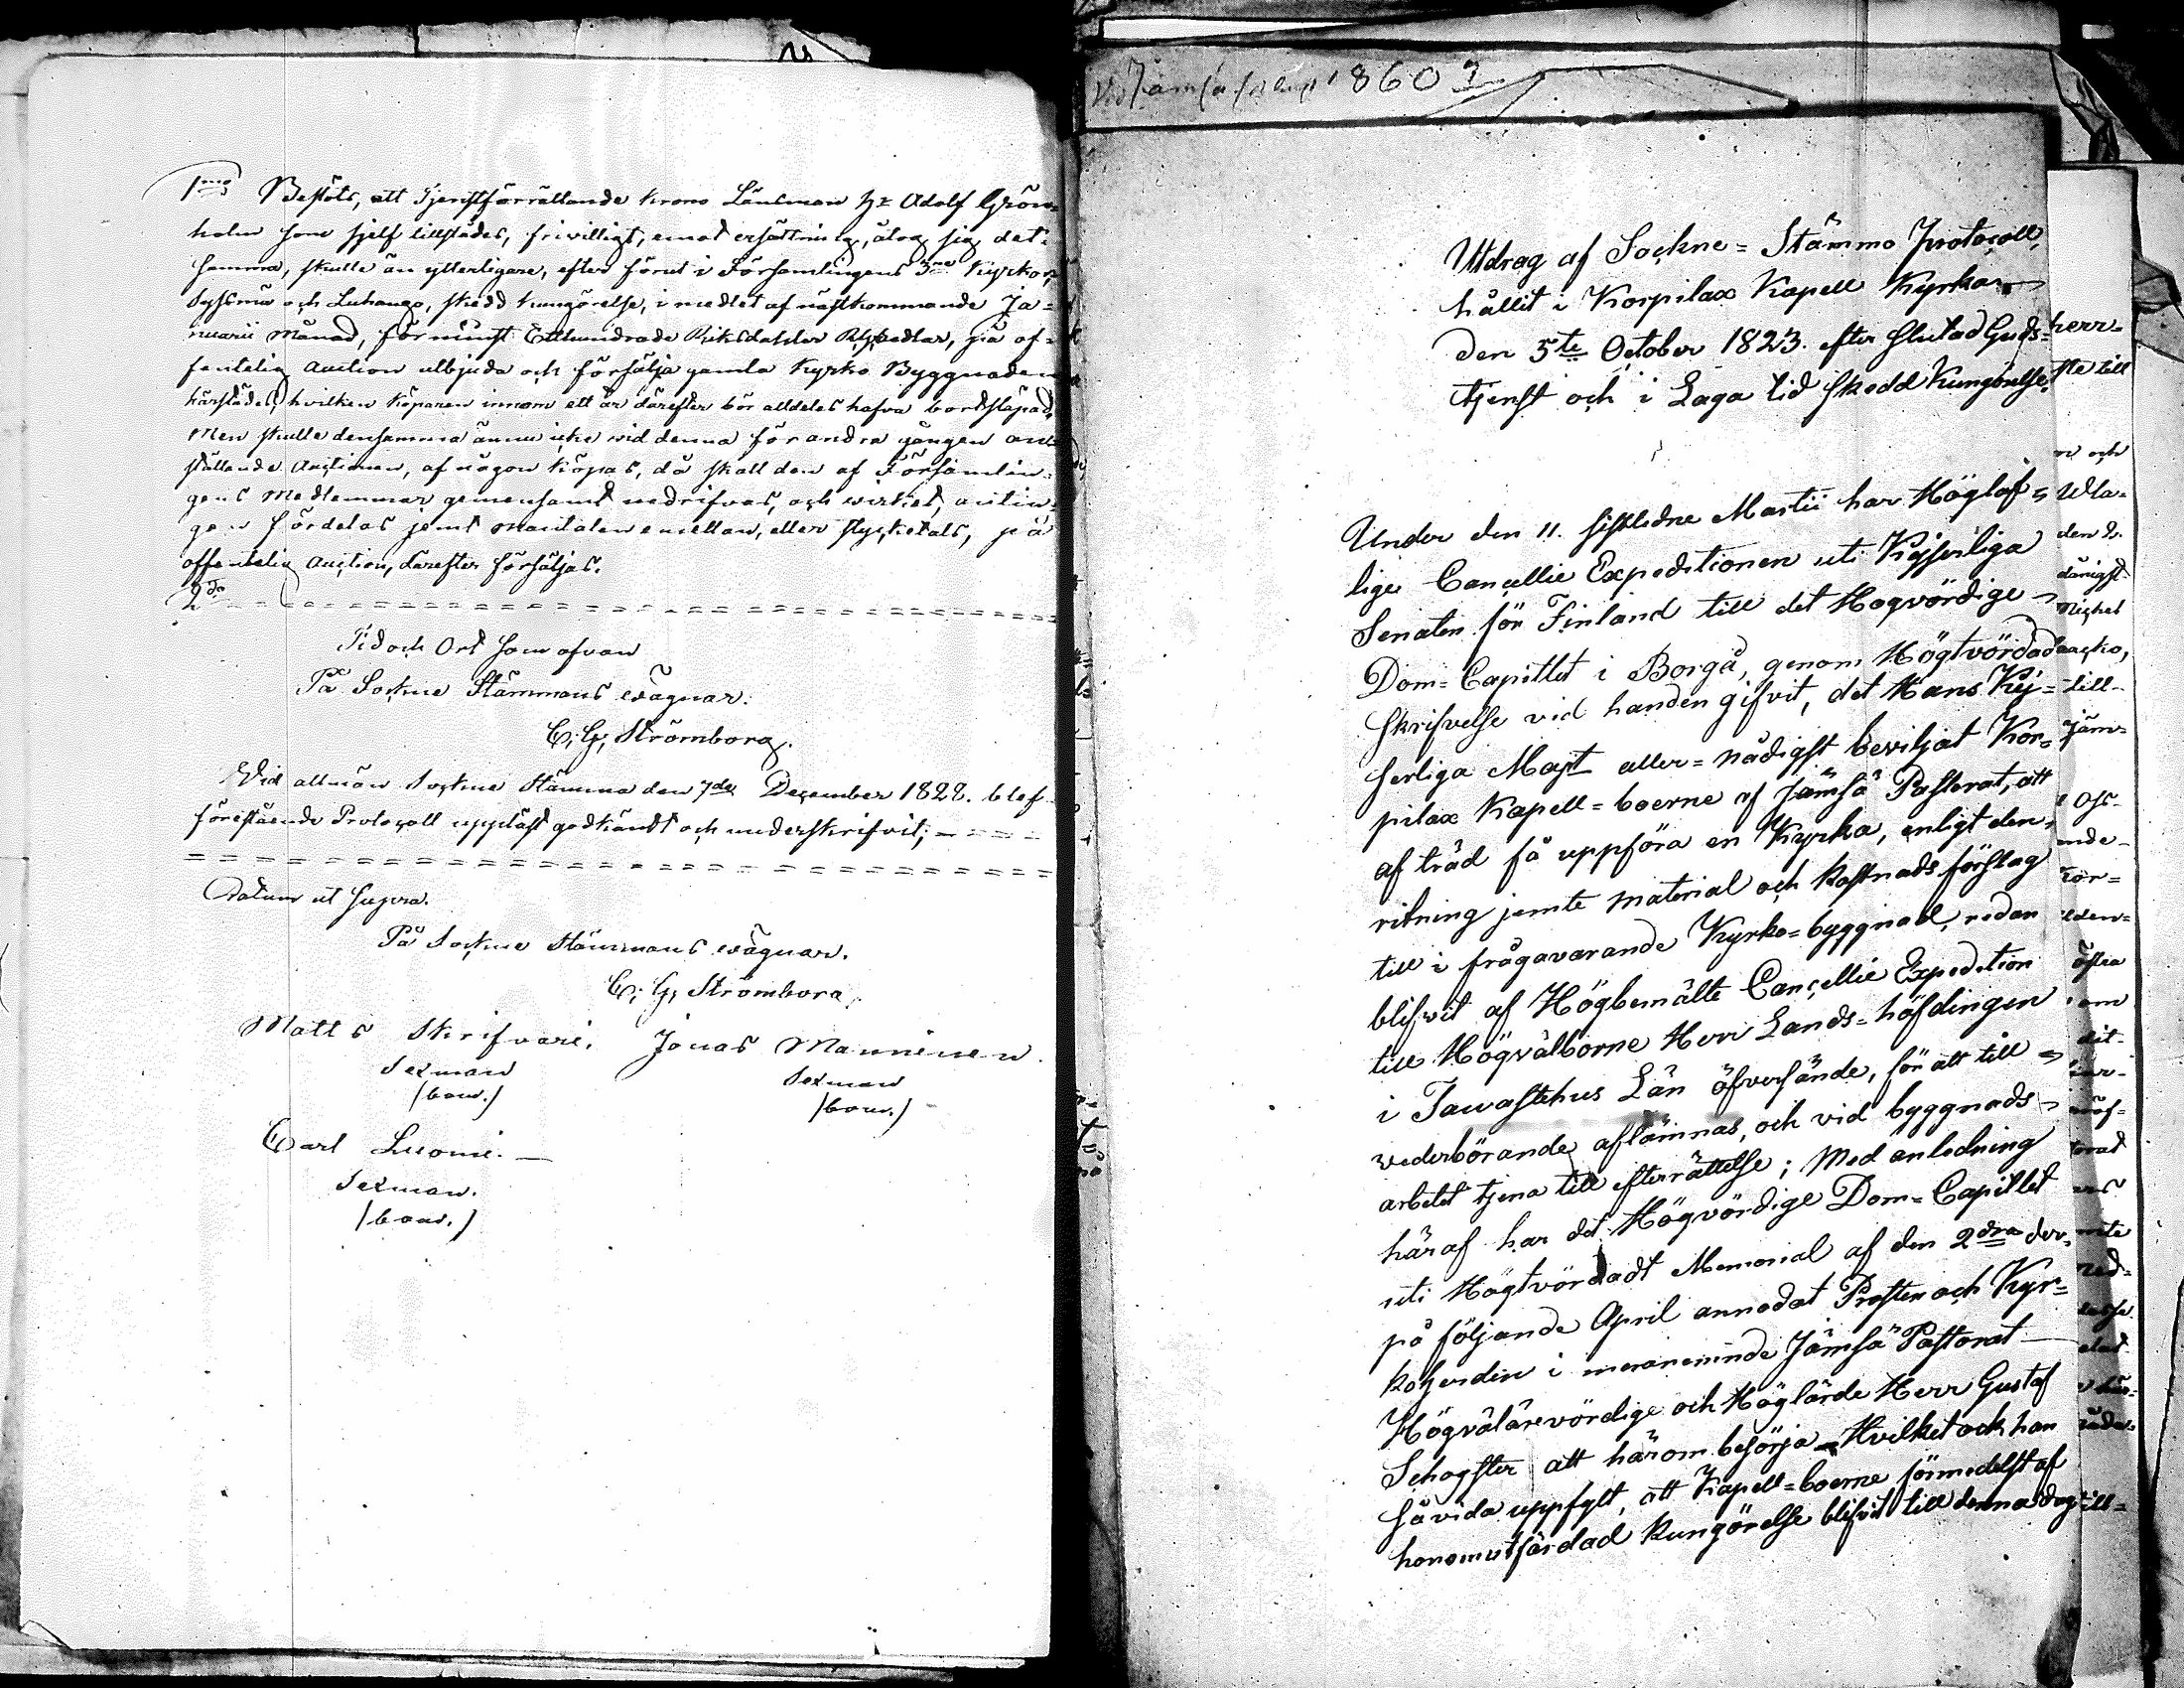 1mo Beslöts, att Tjenstförrättande Krono Länsman Hr Adolf Grön-
holm som sjelf tillstädes, frivilligt, emot ersättning, åtog sig det-
samma, skulle än ytterligare, efter förut i Församlingens 3ne Kyrkor,
Sysmä och Luhango, skedd kungörelse, i medlet af nästkommande Ja-
nuarii Månad, för minst Etthundrade Riksdahler Rgsedlar, på of-
fentelig Auction utbjuda och försälja gamla Kyrko Byggnaden
härstädes, hvilken Köparen innom ett år därefter bör alldeles hafva bortsläpad,
Men skulle densamma ännu icke wid denna för andra gången an-
ställande Auctionen, af någon köpas, då skall den af Församlin-
gens Medlemmar gemensamt nedrifvas, och wirket, antin-
gen fördelas jemt Mantalen emellan, eller styckетals, på
offentelig Auction, därefter försäljas.
2do = = = = = = = = = = = = = = = = = = = = =
Tid och Ort som ofvan
På Sockne Stämmans wägnar.
C. G. Strömborg.
Vid allmän Sockne Stämma den 7de December 1828. blef
förestående Protocoll uppläst godkändt och underskrifvit; = = = =
= = = = = = = = = = = = = = = = = = = = =
Datum ut Supra.
På Sockne Stämmans wägnar.
C. G. Strömborg
Matts Skrifvari. Jonas Manninen.
Sexman Sexman
(bom.) (bom.)
Carl Luomi. —
Sexman.
(bom.)
1860
Utdrag af Sockne=Stämmo Protocoll,
hållit i Korpilax Kapell Kyrka
den 5te October 1823. efter slutad Guds=
tjenst och i Laga tid skedd Kungörelse.
Under den 11. sistledne Martii har Höglof=
lige Cancellie Expeditionen uti Kejserliga
Senaten för Finland till det Högvördige
Dom=Capitlet i Borgå, genom Högtvördad
skrifvelse vid handen gifvit, det Hans Kej=
serliga Majt aller=nådigst beviljat Kor=
pilax Kapell=boerne af Jämsä Pastorat, att
af träd få uppföra en Kyrka, enligt den
ritning jemte Material och Kostnads förslag
till i frågavarande Kyrko=byggnad, redan
blifvit af Högbemälte Cancellie Expedition
till Högvälborne Herr Lands=höfdingen
i Tawastehus Län öfversände, för att till
vederbörande aflämnas, och vid byggnads
arbetet tjena till efterrättelse; Med anledning
häraf har det Högvördige Dom=Capitlet
uti Högtvördadt Memorial af den 2dra der=
på följande April anmodat Prosten och Kyr=
koherden i meranemnde Jämsä Pastorat
Högvälärevördige och Höglärde Herr Gustaf
att härom besörja Hvilket ock han
såvida uppfylt, att Kapell=boerne förmedelst af
honom utfärdad Kungörelse blifvit till denna dag